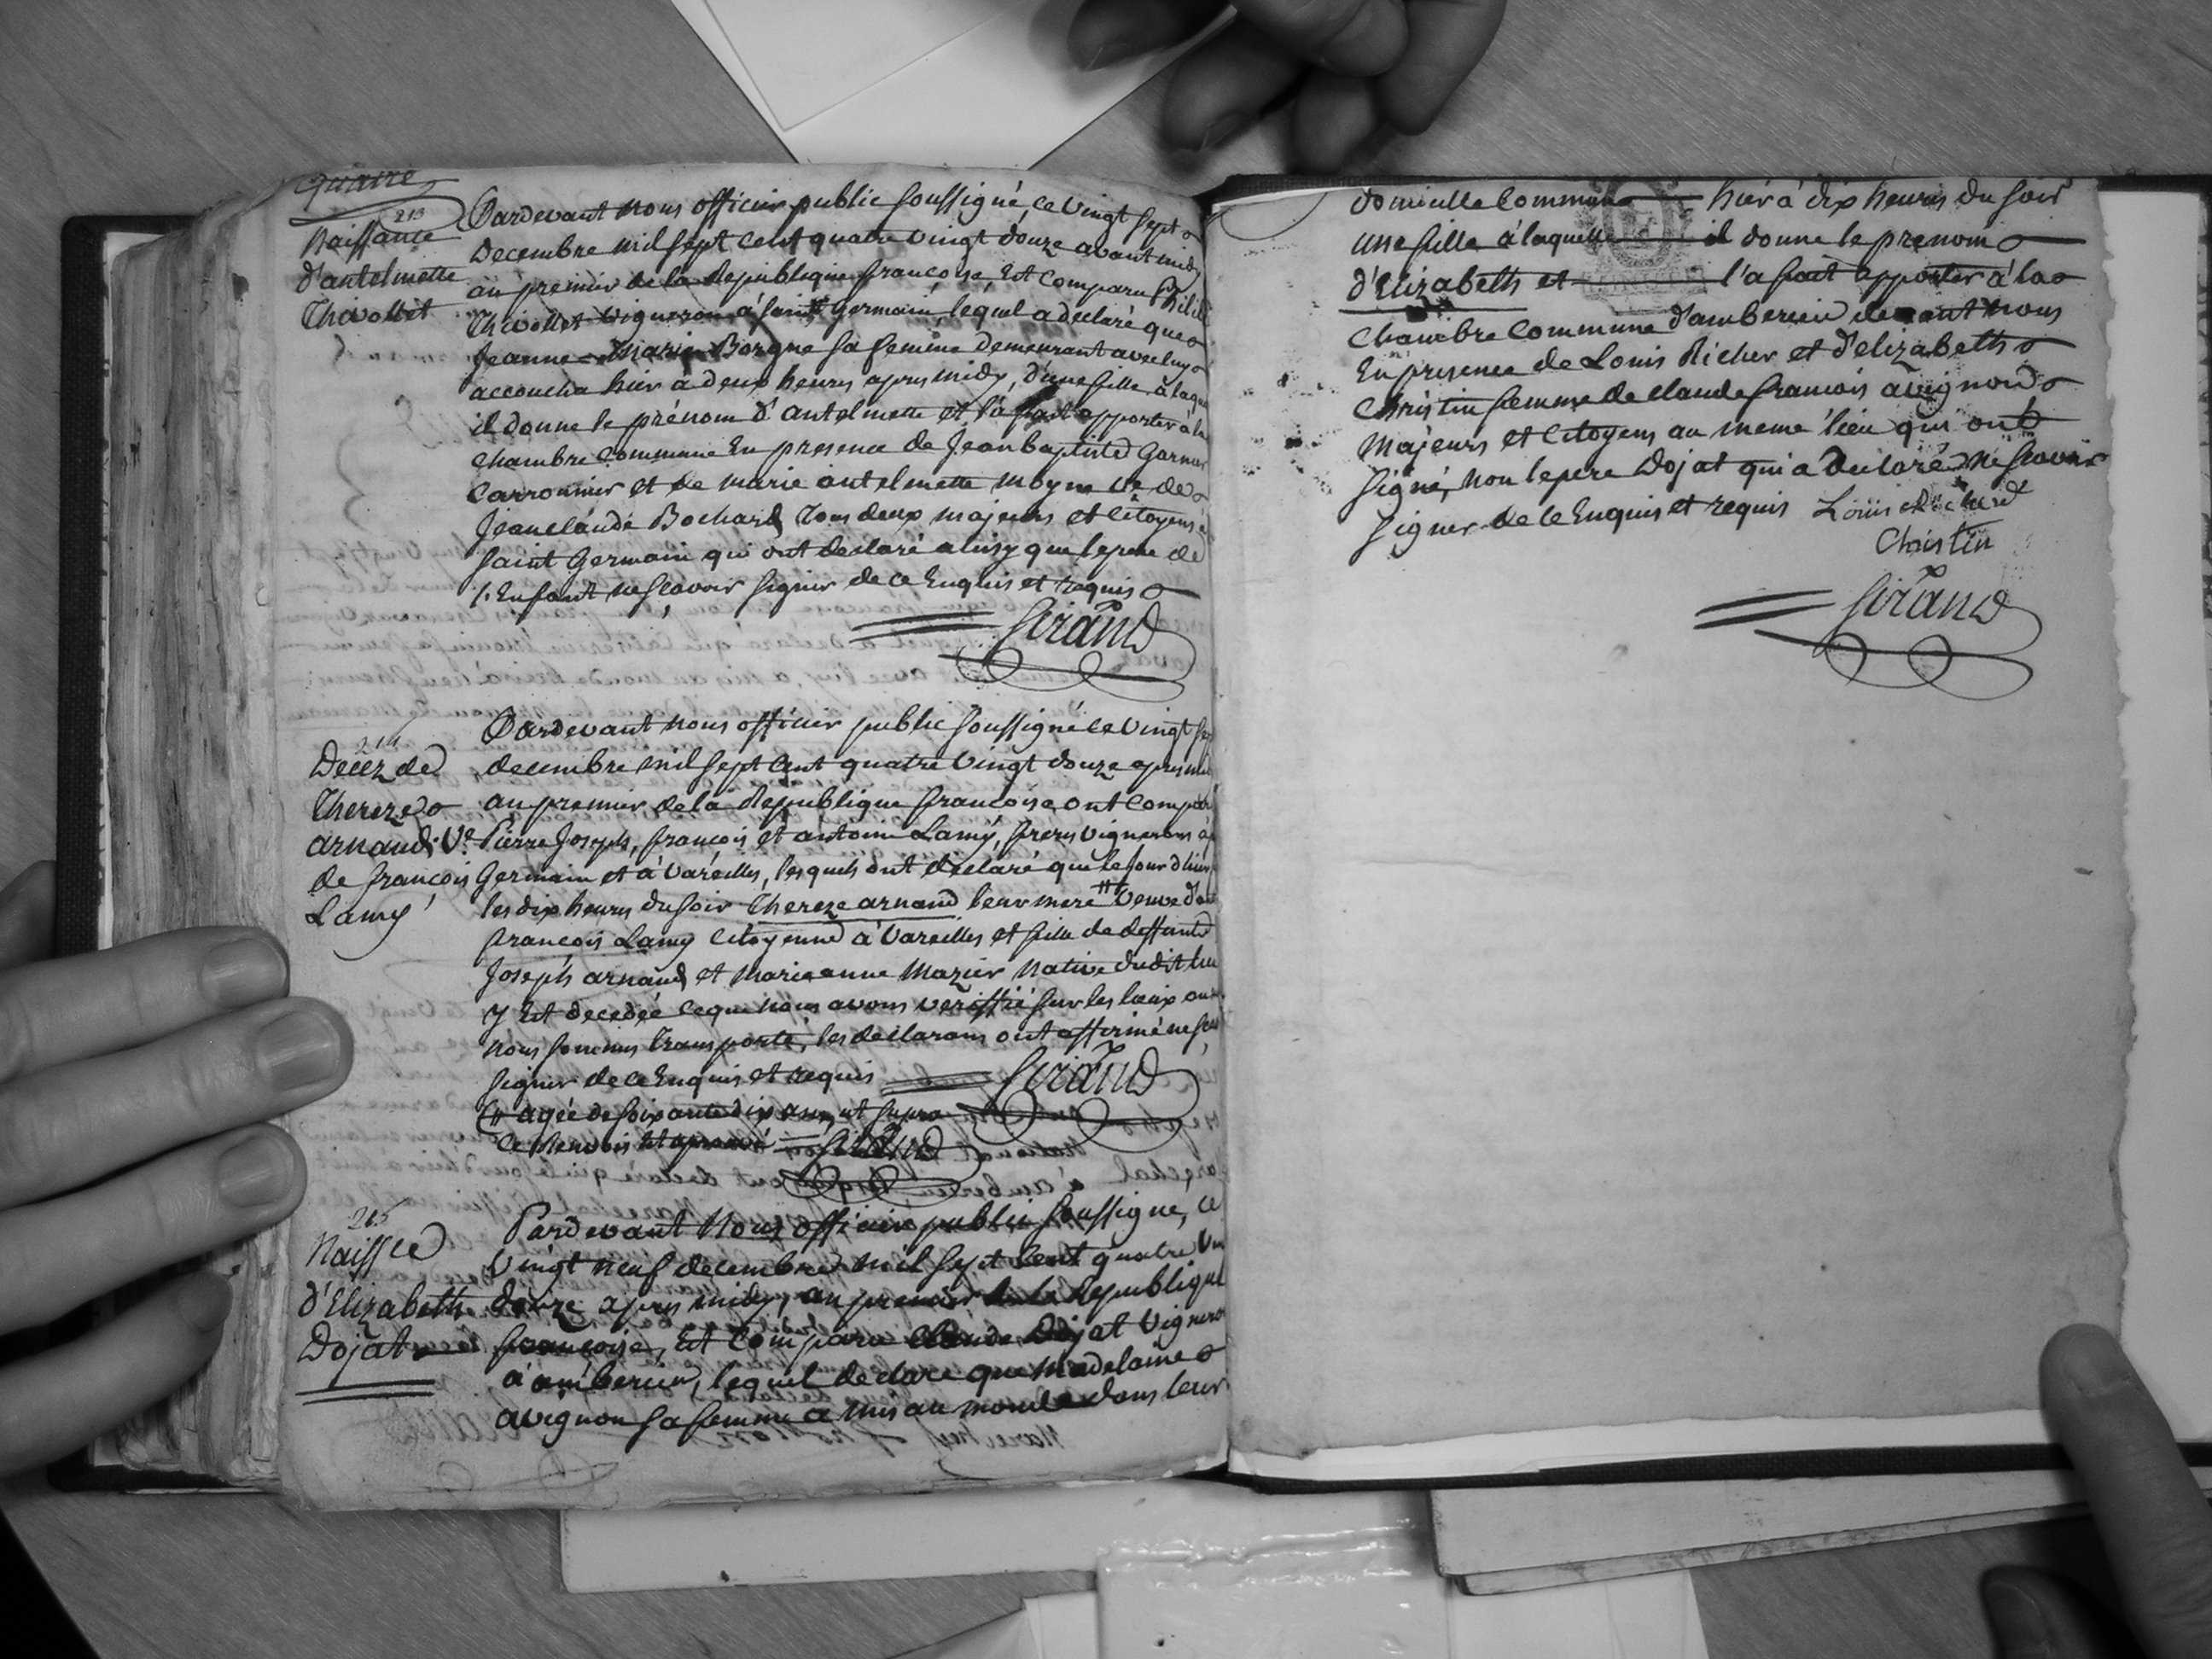 quatre
213
Naissance
d'antelmette
Thivollet
Pardevant nous officier public soussigné, ce vingt sept
Decembre mil sept cent quatre vingt douze avant midy
an premier de la Republique françoise, Est Comparu
Thivollet vigneron à saint Germain, lequel a declaré que
Jeanne Marie Borgne sa femme demeurant avec luy
accoucha hier a deux heures apres midy, d'une fille à laque
il donne le prénom d'antelmette et l'a fait apporter à la
Chambre Commune En presence de Jean baptiste Garnier
Carronnier et de marie antelmette moyne ve de
Jeanclaude Bochard, tous deux majeurs et Citoyens à
saint Germain qui ont declaré ainsy que le pere de
l'Enfant ne sçavoir signer de ce Enquis et requis
Girand
214
Decez de
Thereze
arnaud Ve
de françois
Lamy
Pardevant nous officier public soussigné ce vingt sep
decembre mil sept cent quatre vingt douze apres mid
an premier de la Republique françoise, ont Compar
Pierre Joseph, françois et antoine Lamy, freres vignerons à
Germain et à Vareilles, lesquels ont declaré que le jour d'hier
les dix heures du soir Thereze arnaud leur mere # veuve
françois Lamy Citoyenne à Vareilles et fille de deffunts
Joseph arnaud et Marie anne Mazier native dudit lieu
y Est decedée ce que nous avons veriffié sur les lieux ou
nous sommes transporté, les declarans ont affirmé ne
signer de ce Enquis et requis Girand
# agée de soixante dix ans, ut supra
ce Renvois Est aprouvé Girand
215
Naissce
d'Elizabeth
Dojat
Pardevant Nous officier public soussigné, ce
vingt neuf decembre mil sept cent quatre
douze apres midy, an premier de la Republique
françoise, Est Comparu Claude Dojat vigneron
à amberieu, lequel declare que Madelaine
avignon sa femme a mis au monde dans leur
domicille Commune hier à dix heures du soir
une fille à laquelle il donne le prenom
d'Elizabeth et l'a fait apporter à la
Chambre Commune d'amberieu devant nous
En presence de Louis Richer et d'elizabeth
Christin femme de claude francois avignon
majeurs et Citoyens au meme lieu qui ont
signé, non le pere Dojat qui a declaré ne sçavoir
signer de ce Enquis et requis Louis Richerd
Christin
Girand